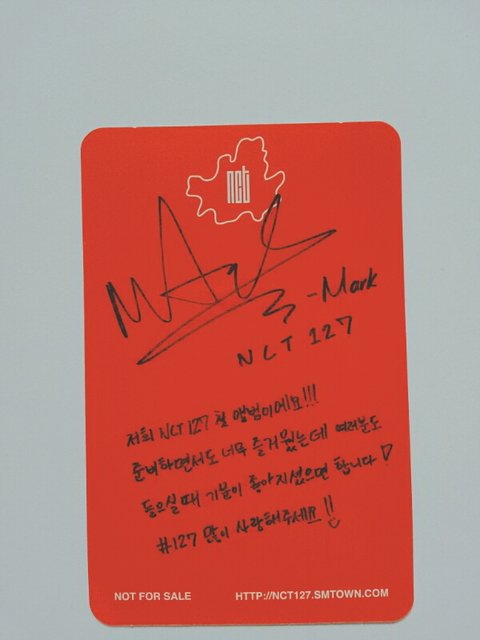 nct
MArk
-Mark
NCT 127
저희 NCT 127 첫 앨범이에요!!!
준비하면서도 너무 즐거웠는데 여러분도
들으실때 기분이 좋아지셨으면 합니다♡
#127 많이 사랑해주세요!!
NOT FOR SALE
HTTP://NCT127.SMTOWN.COM